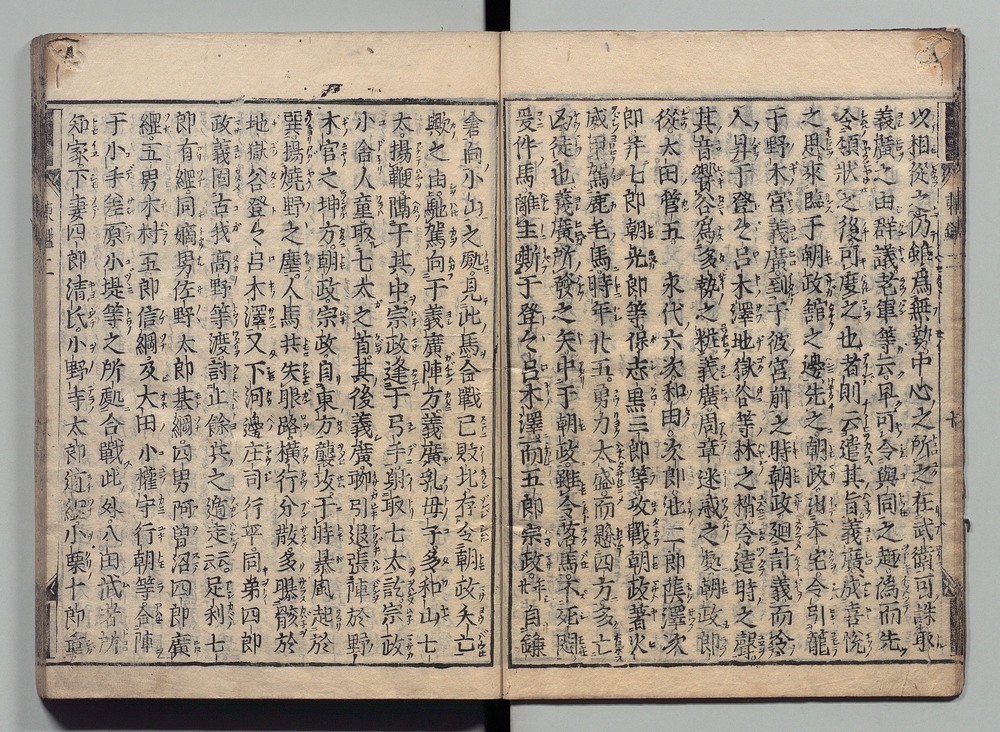 以相從之仍雖爲無勢中心之所之在武衛可誅取
義廣之由群議老軍等云早可令與同之趣僞而先
令領狀之後可度之也者則云遣其旨義廣成喜悅
之思來臨于朝政館之邊先之朝政出本宅令引籠
于野木宮義廣到于彼宮前之時朝政廻計義而令
人昇于登々呂木澤地獄谷等林之梢令造時之聲
其音響谷爲多勢之粧義廣周章迷惑之處朝政郎
從太田菅五 水代六次和田次郎池二郎蔭澤次
郎幷七郎朝光郎等保志黒三郎等攻戰朝政著火
威甲駕鹿毛馬時年廿五勇力太盛而懸四方多亡
凶徒也義廣所發之矢中于朝政雖令落馬不死悶
爰件馬離主嘶于登々呂木澤而五郎宗政年廿自鎌
倉向小山之處見此馬合戰已敗北存令朝政夭亡
歟之由馳駕向于義廣陣方義廣乳母子多和山七
太揚鞭隔于其中宗政逢于弓手射取七太訖宗政
小舎人童取七太之首其後義廣聊引退張陣於野
木宮之坤方朝政宗政自東方襲攻于時暴風起於
巽揚燒野之塵人馬共失眼路橫行分散多曝骸於
地獄谷登々呂木澤又下河邊庄司行平同弟四郎
政義固古我高野等渡討止餘兵之遁走云々足利七
郎有綱同嫡男佐野太郎基綱四男阿曽沼四郎廣
綱五男木村五郎信綱及太田小權守行朝等會陣
于小手差原小堤等之所處合戰此外八田武者所
知家下妻四郎清氏小野寺太郎道綱小栗十郎重